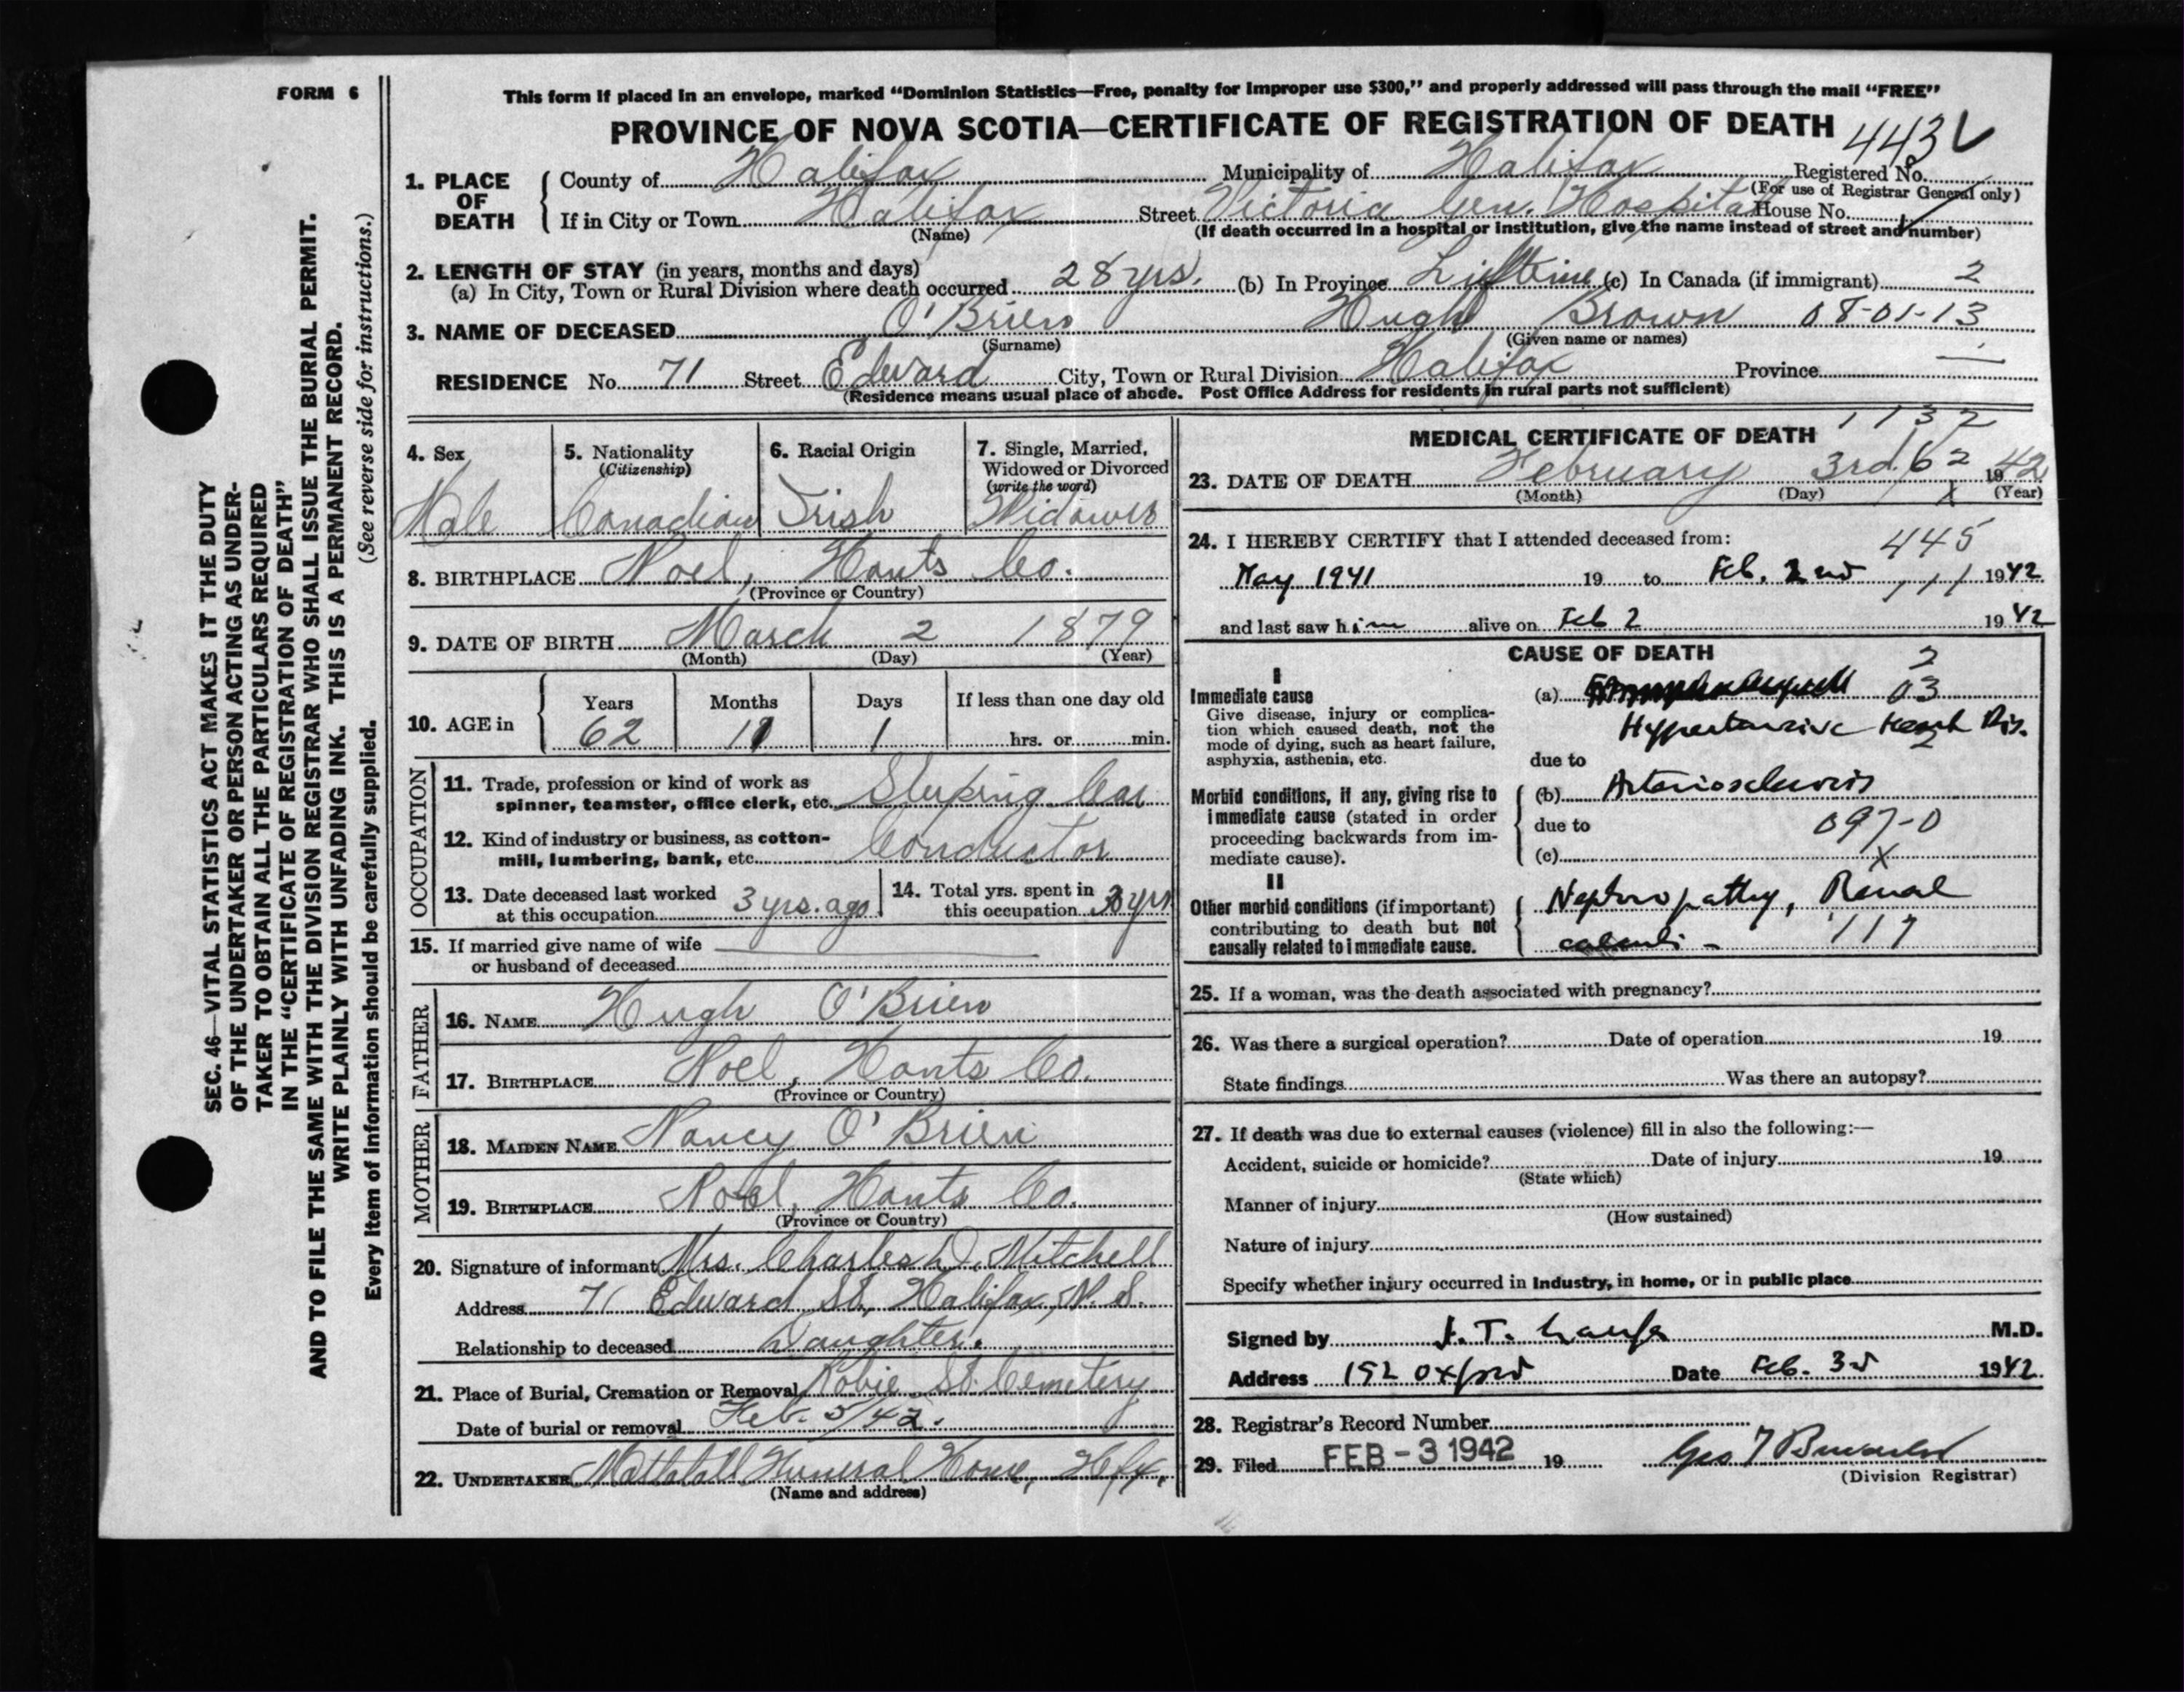 FORM 6
This form if placed in an envelope, marked "Dominion Statistics—Free, penalty for improper use $300," and properly addressed will pass through the mail "FREE"
PROVINCE OF NOVA SCOTIA—CERTIFICATE OF REGISTRATION OF DEATH
443
1. PLACE OF DEATH
County of Halifax Municipality of Halifax Registered No.
(For use of Registrar General only)
If in City or Town Halifax Street Victoria Gen. Hospital House No.
(Name) (If death occurred in a hospital or institution, give the name instead of street and number)
2. LENGTH OF STAY (in years, months and days)
(a) In City, Town or Rural Division where death occurred 28 yrs. (b) In Province Lifetime (c) In Canada (if immigrant) 2
3. NAME OF DECEASED O'Brien Hugh Brown 08-01-13
(Surname) (Given name or names)
RESIDENCE No. 71 Street Edward City, Town or Rural Division Halifax Province
(Residence means usual place of abode. Post Office Address for residents in rural parts not sufficient)
4. Sex
Male
5. Nationality
(Citizenship)
Canadian
6. Racial Origin
Irish
7. Single, Married,
Widowed or Divorced
(write the word)
Widower
8. BIRTHPLACE Noel, Hants Co.
(Province or Country)
9. DATE OF BIRTH March 2 1879
(Month) (Day) (Year)
10. AGE in
Years Months Days If less than one day old
62 11 1 hrs. or min.
OCCUPATION
11. Trade, profession or kind of work as
spinner, teamster, office clerk, etc. Sleeping Car
12. Kind of industry or business, as cotton-
mill, lumbering, bank, etc. Conductor
13. Date deceased last worked
at this occupation 3 yrs. ago
14. Total yrs. spent in
this occupation yrs
15. If married give name of wife
or husband of deceased
FATHER
16. NAME Hugh O'Brien
17. BIRTHPLACE Noel, Hants Co.
(Province or Country)
MOTHER
18. MAIDEN NAME Nancy O'Brien
19. BIRTHPLACE Noel, Hants Co.
(Province or Country)
20. Signature of informant Mrs. Charles D. Mitchell
Address 71 Edward St, Halifax, N.S.
Relationship to deceased Daughter.
21. Place of Burial, Cremation or Removal Robie St. Cemetery
Date of burial or removal Feb. 5/42.
22. UNDERTAKER Funeral Home, Hfx,
(Name and address)
MEDICAL CERTIFICATE OF DEATH
1132
23. DATE OF DEATH February 3rd 62 1942
(Month) (Day) (Year)
24. I HEREBY CERTIFY that I attended deceased from:
445
May 1941 19 to Feb. 2nd 1942
111
and last saw him alive on Feb 2 1942
CAUSE OF DEATH
2
I
Immediate cause
Give disease, injury or complica-
tion which caused death, not the
mode of dying, such as heart failure,
asphyxia, asthenia, etc.
(a) 03
Hypertensive Heart Dis.
2
due to
Morbid conditions, if any, giving rise to
immediate cause (stated in order
proceeding backwards from im-
mediate cause).
(b) Arteriosclerosis
due to 097-0
(c) X
II
Other morbid conditions (if important)
contributing to death but not
causally related to immediate cause.
Nephropathy, Renal
calculi - 117
25. If a woman, was the death associated with pregnancy?
26. Was there a surgical operation? Date of operation 19
State findings Was there an autopsy?
27. If death was due to external causes (violence) fill in also the following:—
Accident, suicide or homicide? Date of injury 19
(State which)
Manner of injury
(How sustained)
Nature of injury
Specify whether injury occurred in industry, in home, or in public place
Signed by M.D.
Address 192 Oxford Date Feb. 3rd 1942
28. Registrar's Record Number
29. Filed FEB - 3 1942 19
(Division Registrar)
SEC. 46—VITAL STATISTICS ACT MAKES IT THE DUTY
OF THE UNDERTAKER OR PERSON ACTING AS UNDER-
TAKER TO OBTAIN ALL THE PARTICULARS REQUIRED
IN THE "CERTIFICATE OF REGISTRATION OF DEATH"
AND TO FILE THE SAME WITH THE DIVISION REGISTRAR WHO SHALL ISSUE THE BURIAL PERMIT.
WRITE PLAINLY WITH UNFADING INK. THIS IS A PERMANENT RECORD.
Every item of information should be carefully supplied. (See reverse side for instructions.)